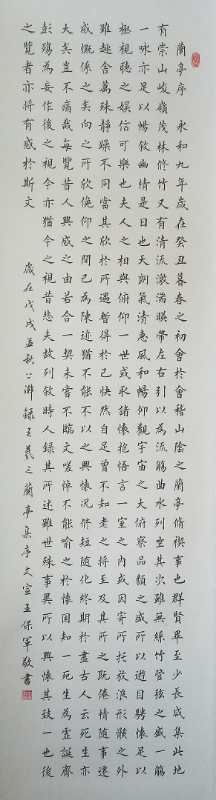 蘭亭序 永和九年歲在癸丑暮春之初會於會稽山陰之蘭亭修禊事也群賢畢至少長咸集此地
有崇山峻嶺茂林修竹又有清流激湍映帶左右引以為流觴曲水列坐其次雖無絲竹管弦之盛一觴
一咏亦足以暢敘幽情是日也天朗氣清惠風和暢仰觀宇宙之大俯察品類之盛所以遊目騁懷足以
極視聽之娛信可樂也夫人之相與俯仰一世或取諸懷抱悟言一室之內或因寄所托放浪形骸之外
雖趣舍萬殊靜躁不同當其欣於所遇暫得於己快然自足曾不知老之將至及其所之既倦情隨事遷
感慨係之矣向之所欣俛仰之間已為陳迹猶不能不以之興懷況修短隨化終期於盡古人云死生亦
大矣豈不痛哉每覽昔人興感之由若合一契未嘗不臨文嗟悼不能喻之於懷固知一死生為虛誕齊
彭殤為妄作後之視今亦猶今之視昔悲夫故列敘時人錄其所述雖世殊事異所以興懷其致一也後
之覽者亦將有感於斯文
歲在戊戌孟秋錄王羲之蘭亭集序文王保軍敬書